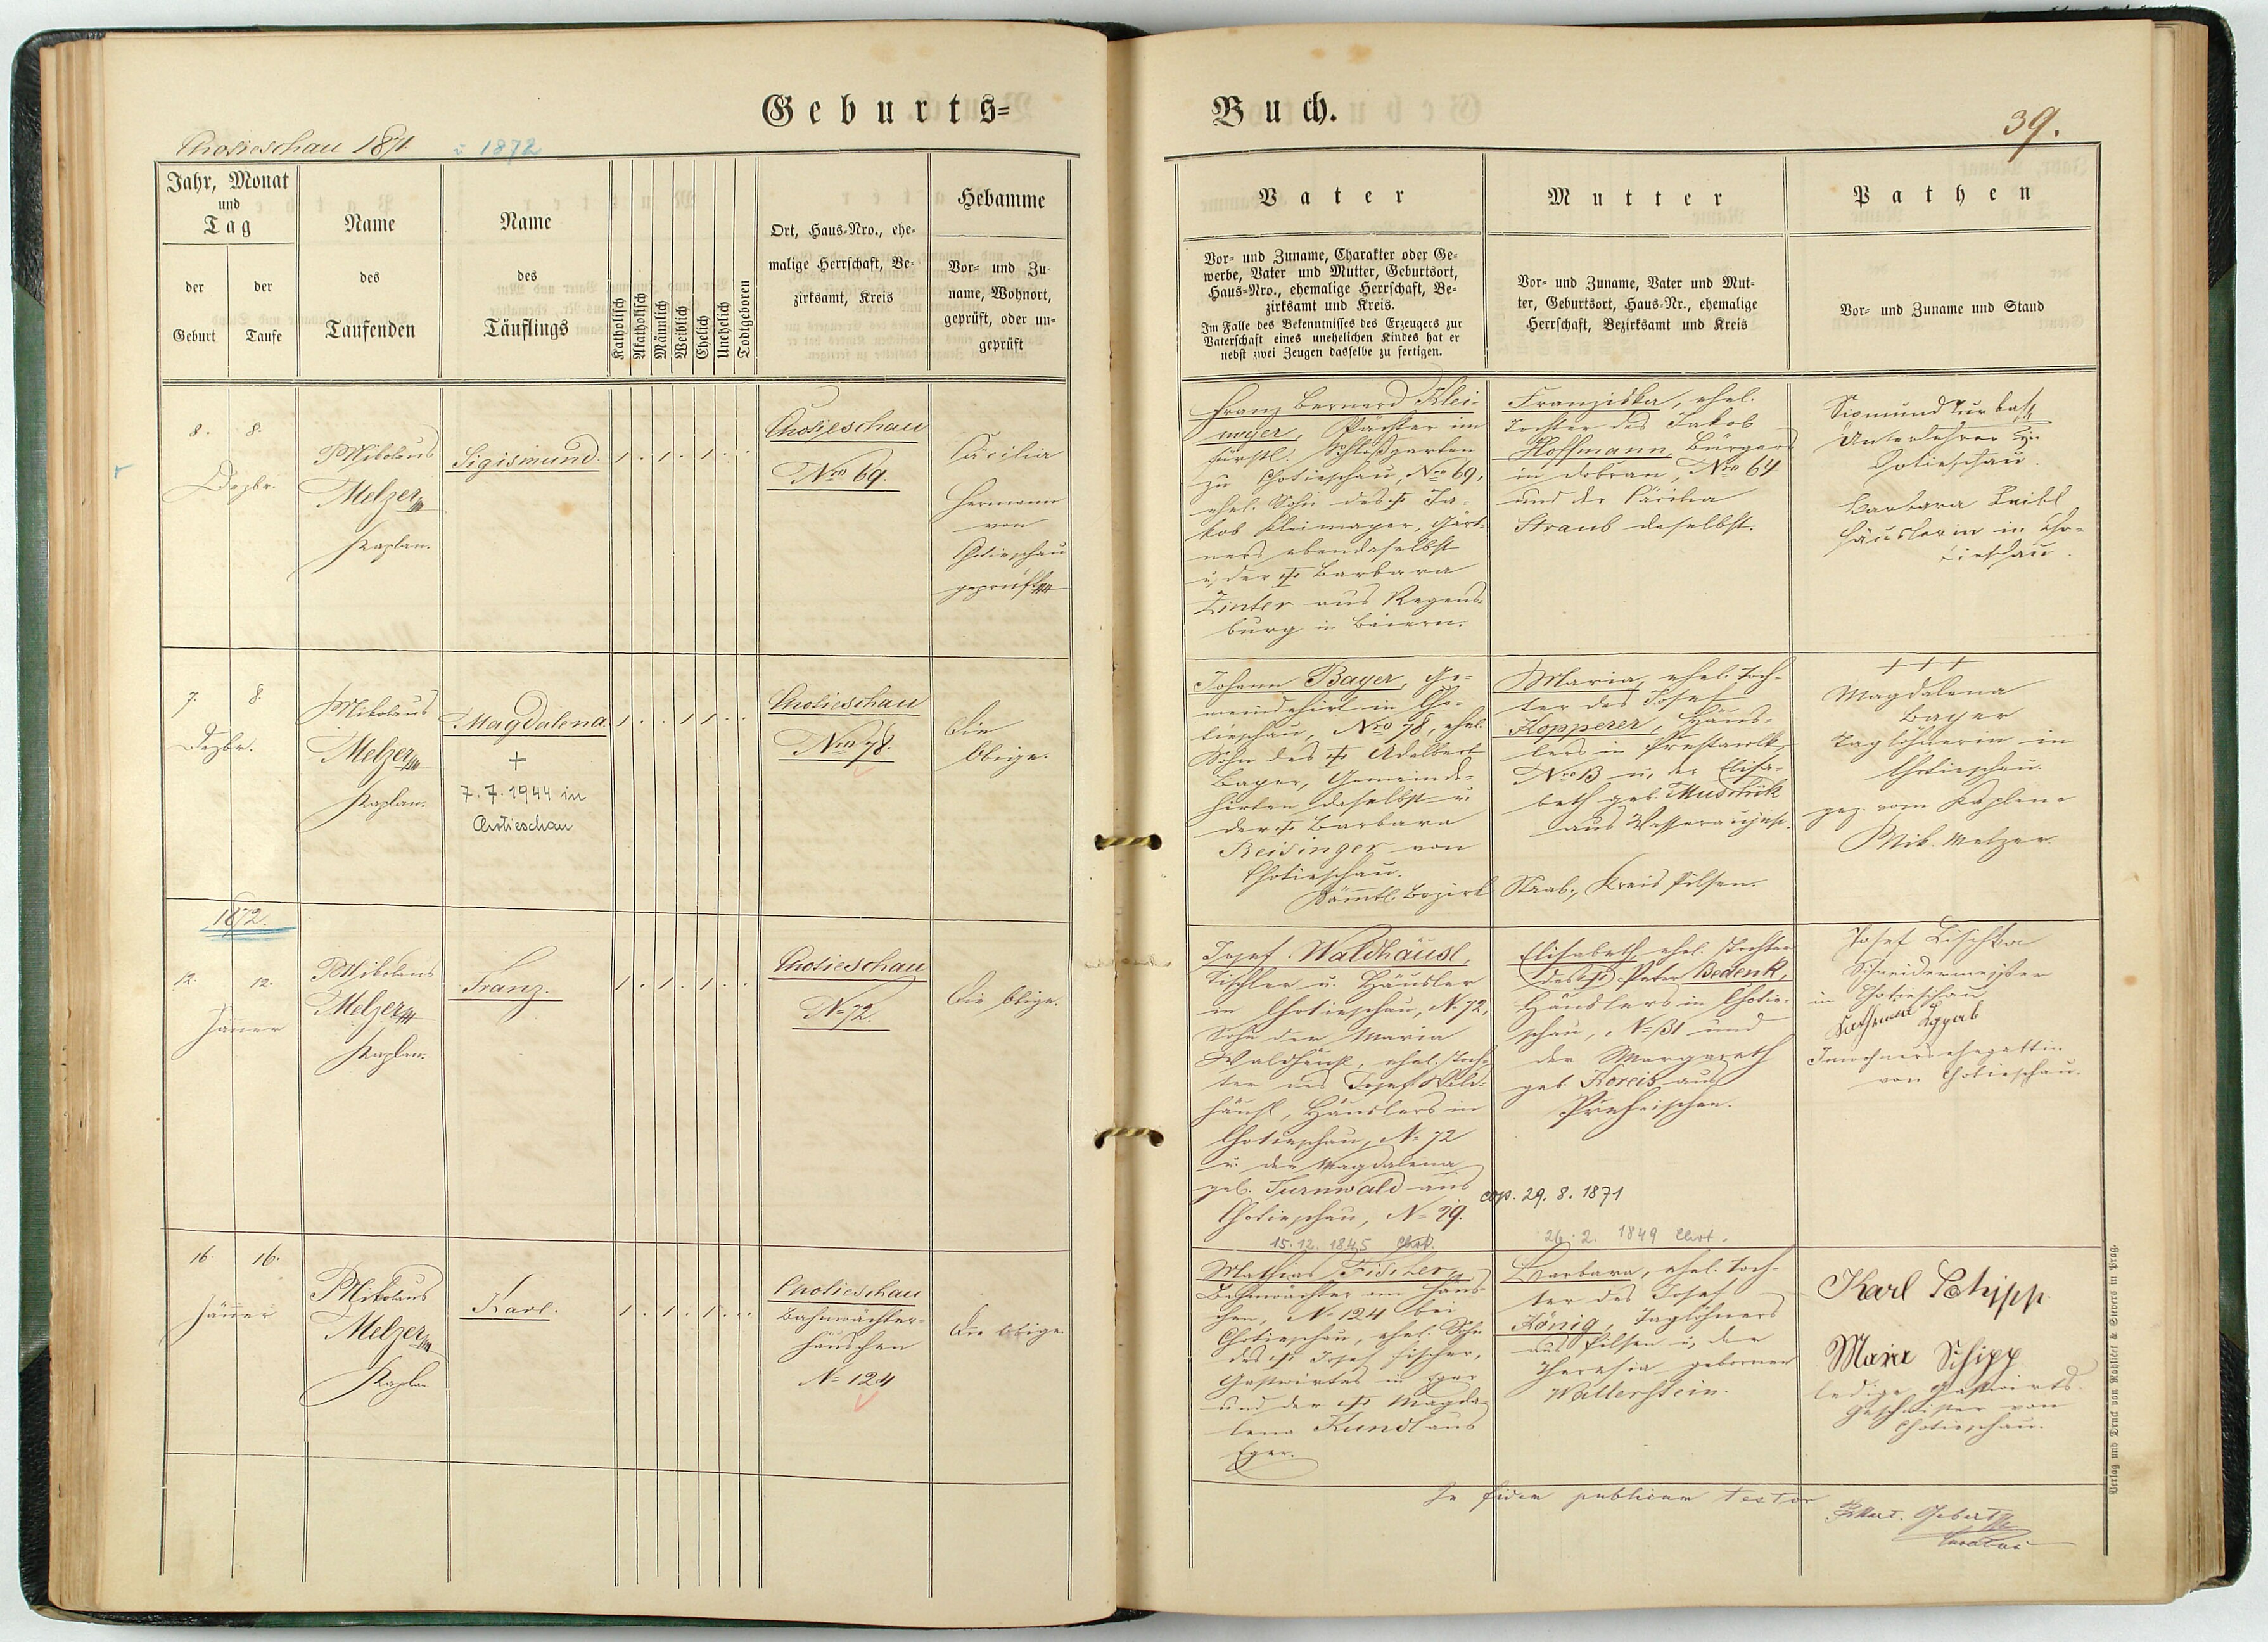 Geburts=
Buch.
39.
Chotieschau 1871. u 1872
Jahr, Monat
und
Tag
der
Geburt
der
Taufe
Name
des
Taufenden
Name
des
Täuflings
Katholisch
Akatholisch
Männlich
Weiblich
Ehelich
Unehelich
Todtgeboren
Ort, Haus-Nro., ehe-
malige Herrschaft, Be-
zirksamt, Kreis
Hebamme
Vor- und Zu-
name, Wohnort,
geprüft, oder un-
geprüft
Vater
Vor- und Zuname, Charakter oder Ge-
werbe, Vater und Mutter, Geburtsort,
Haus-Nro., ehemalige Herrschaft, Be-
zirksamt und Kreis.
Im Falle des Bekenntnisses des Erzeugers zur
Vaterschaft eines unehelichen Kindes hat er
nebst zwei Zeugen dasselbe zu fertigen.
Mutter
Vor- und Zuname, Vater und Mut-
ter, Geburtsort, Haus-Nr., ehemalige
Herrschaft, Bezirksamt und Kreis
Pathen
Vor- und Zuname und Stand
8. 8.
Dezbr.
P Nikolaus
Melzer
Kaplan.
Sigismund.
Chotieschau
Nro 69.
Cäcilia
Hermann
von
Chotieschau
geprüft
Franz Bernard Klei-
mayer, Pächter im
fürstl. Schloßgarten
zu Chotieschau, Nro 69,
ehel. Sohn des † Ja-
kob Kleimayer, Gärt-
ners ebendaselbst
u. der † Barbara
Zinter aus Regens-
burg in Baiern.
Franziska, ehel.
Tochter des Jakob
Hoffmann, Bürgers
in Dobran, Nro 64
und der Cäcilia
Straub daselbst.
Sigmund Turba
Unterlehrer in
Chotieschau.
Barbara
Häuslerin in Cho-
tieschau.
7. 8.
Dezbr.
Nikolaus
Melzer
Kaplan.
Magdalena.
+
7.7.1944 in
Chotieschau
Chotieschau
Nro 78.
Die
Obige.
Johann Bayer, Ge-
meindehirt in Cho-
tieschau, Nro 78, ehel.
Sohn des † Adalbert
Bayer, Gemeinde-
hirten daselbst u.
der † Barbara
Reisinger von
Chotieschau.
Maria, ehel. Toch-
ter des Josef
Kopperer, Häus-
lers in
Nro 13 u. der Elisa-
beth geb.
aus
Sämtl. Bezirk Staab, Kreis Pilsen.
+++
Magdalena
Bayer
Taglöhnerin in
Chotieschau.
gez. vom Kaplane
Nik. Melzer.
1872.
12. 12.
Jänner
P Nikolaus
Melzer
Kaplan.
Franz.
Chotieschau
N= 72.
Die Obige.
Josef Waldhäusl,
Tischler u. Häusler
in Chotieschau, N. 72,
Sohn der Maria
Waldhäusl, ehel. Toch-
ter des Josef Wald-
häusl, Häuslers in
Chotieschau, N= 72
u. der Magdalena
geb. Turnwald aus
Chotieschau, N= 29.
15.12.1845 Chot.
Elisabeth, ehel. Tochter
des † Peter Bedenk,
Häuslers in Chotie-
schau, N= 31 und
der Margareth
geb. Koreis aus
cop. 29. 8. 1871
26. 2. 1849 Chot.
Josef Lischka
Schneidermeister
in Chotieschau
Katharina
Inwohnersehegattin
von Chotieschau.
16. 16.
Jänner
P Nikolaus
Melzer
Kaplan
Karl.
Chotieschau
Bahnwächter-
häuschen
N= 124
Die Obige.
Mathias Fischer,
Bahnwächter am Häus-
chen, N= 124 bei
Chotieschau, ehel. Sohn
des † Josef Fischer,
Gastwirtes in Eger
und der † Magda-
lena Kundl aus
Eger.
Barbara, ehel. Toch-
ter des Josef
König, Taglöhners
aus Pilsen u. der
Theresia gebornen
Wallerstein.
Karl Schipp
Maria Schipp
ledige Gastwirts-
geschwister von
Chotieschau.
In fidem publicam testor
Gebert
Verlag und Druck von Rohliček & Sievers in Prag.